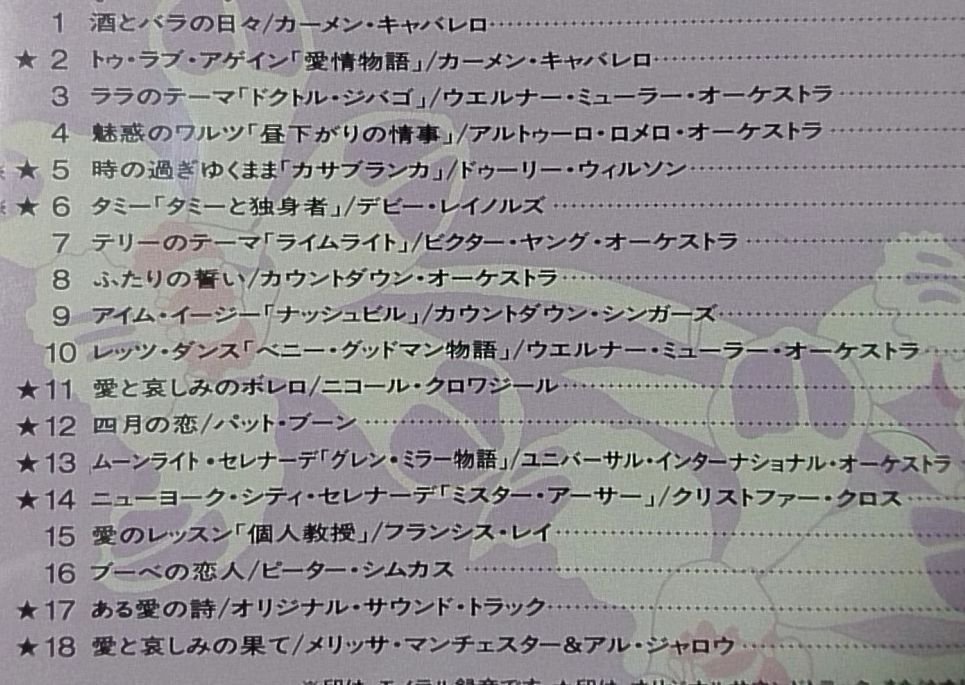 1 酒とバラの日々/カーメン・キャバレロ
★ 2 トゥ・ラブ・アゲイン「愛情物語」/カーメン・キャバレロ
3 ララのテーマ「ドクトル・ジバゴ」/ウエルナー・ミューラー・オーケストラ
4 魅惑のワルツ「昼下がりの情事」/アルトゥーロ・ロメロ・オーケストラ
※ ★ 5 時の過ぎゆくまま「カサブランカ」/ドゥーリー・ウィルソン
※ ★ 6 タミー「タミーと独身者」/デビー・レイノルズ
7 テリーのテーマ「ライムライト」/ビクター・ヤング・オーケストラ
8 ふたりの誓い/カウントダウン・オーケストラ
9 アイム・イージー「ナッシュビル」/カウントダウン・シンガーズ
10 レッツ・ダンス「ベニー・グッドマン物語」/ウエルナー・ミューラー・オーケストラ
★ 11 愛と哀しみのボレロ/ニコール・クロワジール
★ 12 四月の恋/パット・ブーン
★ 13 ムーンライト・セレナーデ「グレン・ミラー物語」/ユニバーサル・インターナショナル・オーケストラ
★ 14 ニューヨーク・シティ・セレナーデ「ミスター・アーサー」/クリストファー・クロス
15 愛のレッスン「個人教授」/フランシス・レイ
16 ブーベの恋人/ピーター・シムカス
★ 17 ある愛の詩/オリジナル・サウンド・トラック
★ 18 愛と哀しみの果て/メリッサ・マンチェスター&アル・ジャロウ